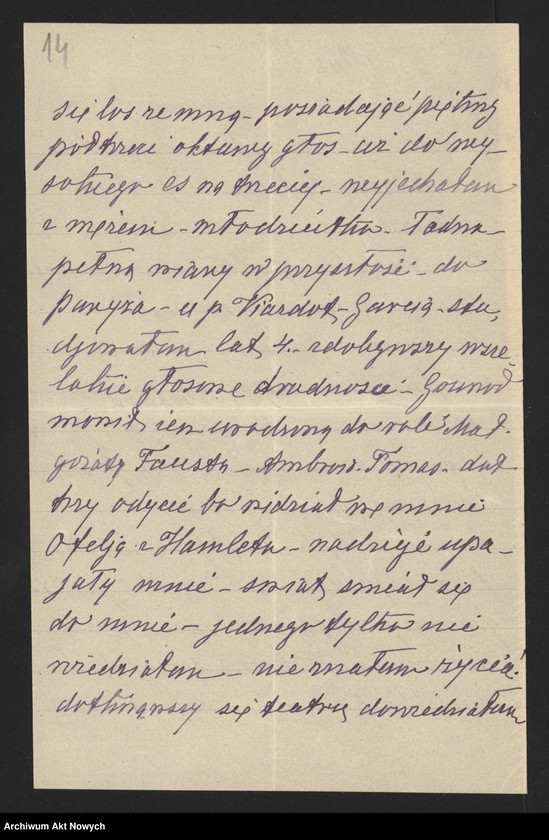 14
się los ze mną - posiadając piękny
półtrzeci oktawy głos - aż do wy-
sokiego es na trzeciej - wyjechałam
z mężem - młodziutka - ładna -
pełna wiary w przyszłość - do
Paryża - u p. Viardot - Garcia - stu-
djowałam lat 4. - zdobywszy wsze-
lakie głosowe trudności - Gounod
mówił żem urodzoną do roli Mał-
gorzaty Fausta - Ambroż. Tomas - dał
trzy odycié bo widział we mnie
Ofelję z Hamleta - nadzieje upa-
jały mnie - świat śmiał się
do mnie - jednego tylko nie
wiedziałam - nie znałam życia!
dotknąwszy się teatru dowiedziałam
Archiwum Akt Nowych